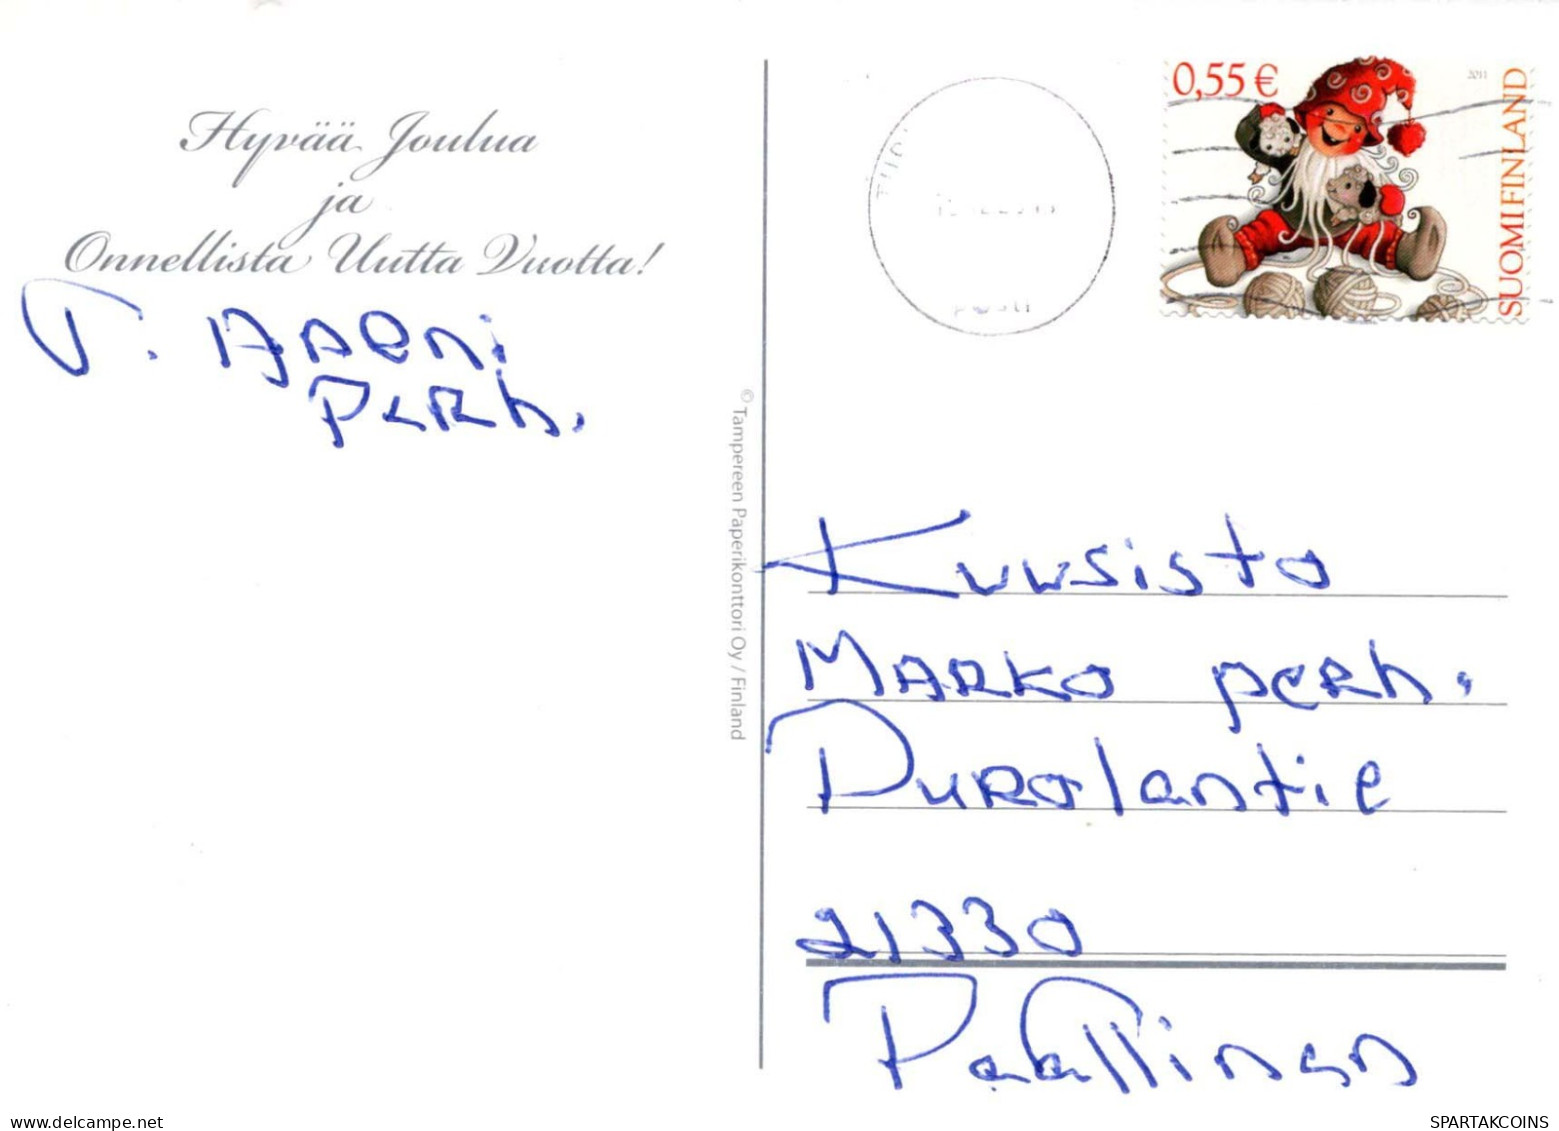 Hyvää Joulua
ja
Onnellista Uutta Vuotta!
T. Aaeni
Perh.
© Tampereen Paperikonttori Oy / Finland
0,55 €
2011
SUOMI FINLAND
Posti
Kuusisto
MARKO perh.
Purolantie
21330
Paattinen
SPARTAKCOINS